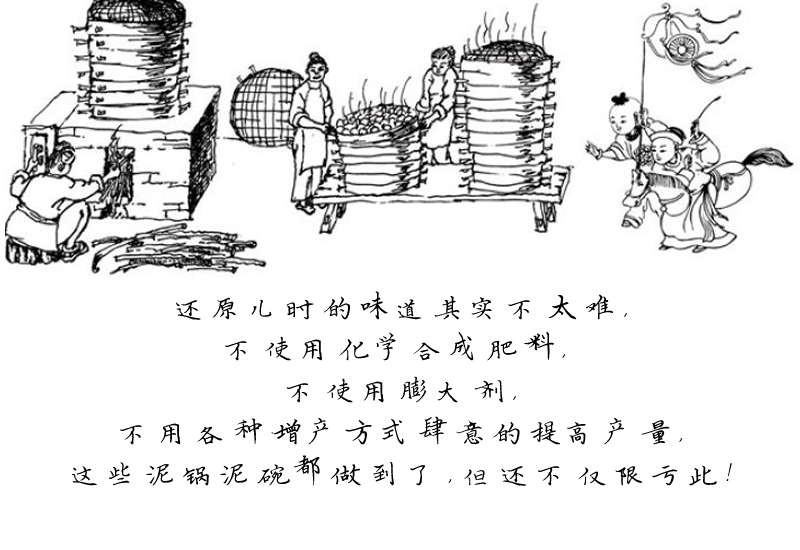 还原儿时的味道其实不太难,
不使用化学合成肥料,
不使用膨大剂,
不用各种增产方式肆意的提高产量,
这些泥锅泥碗都做到了,但还不仅限亏此!